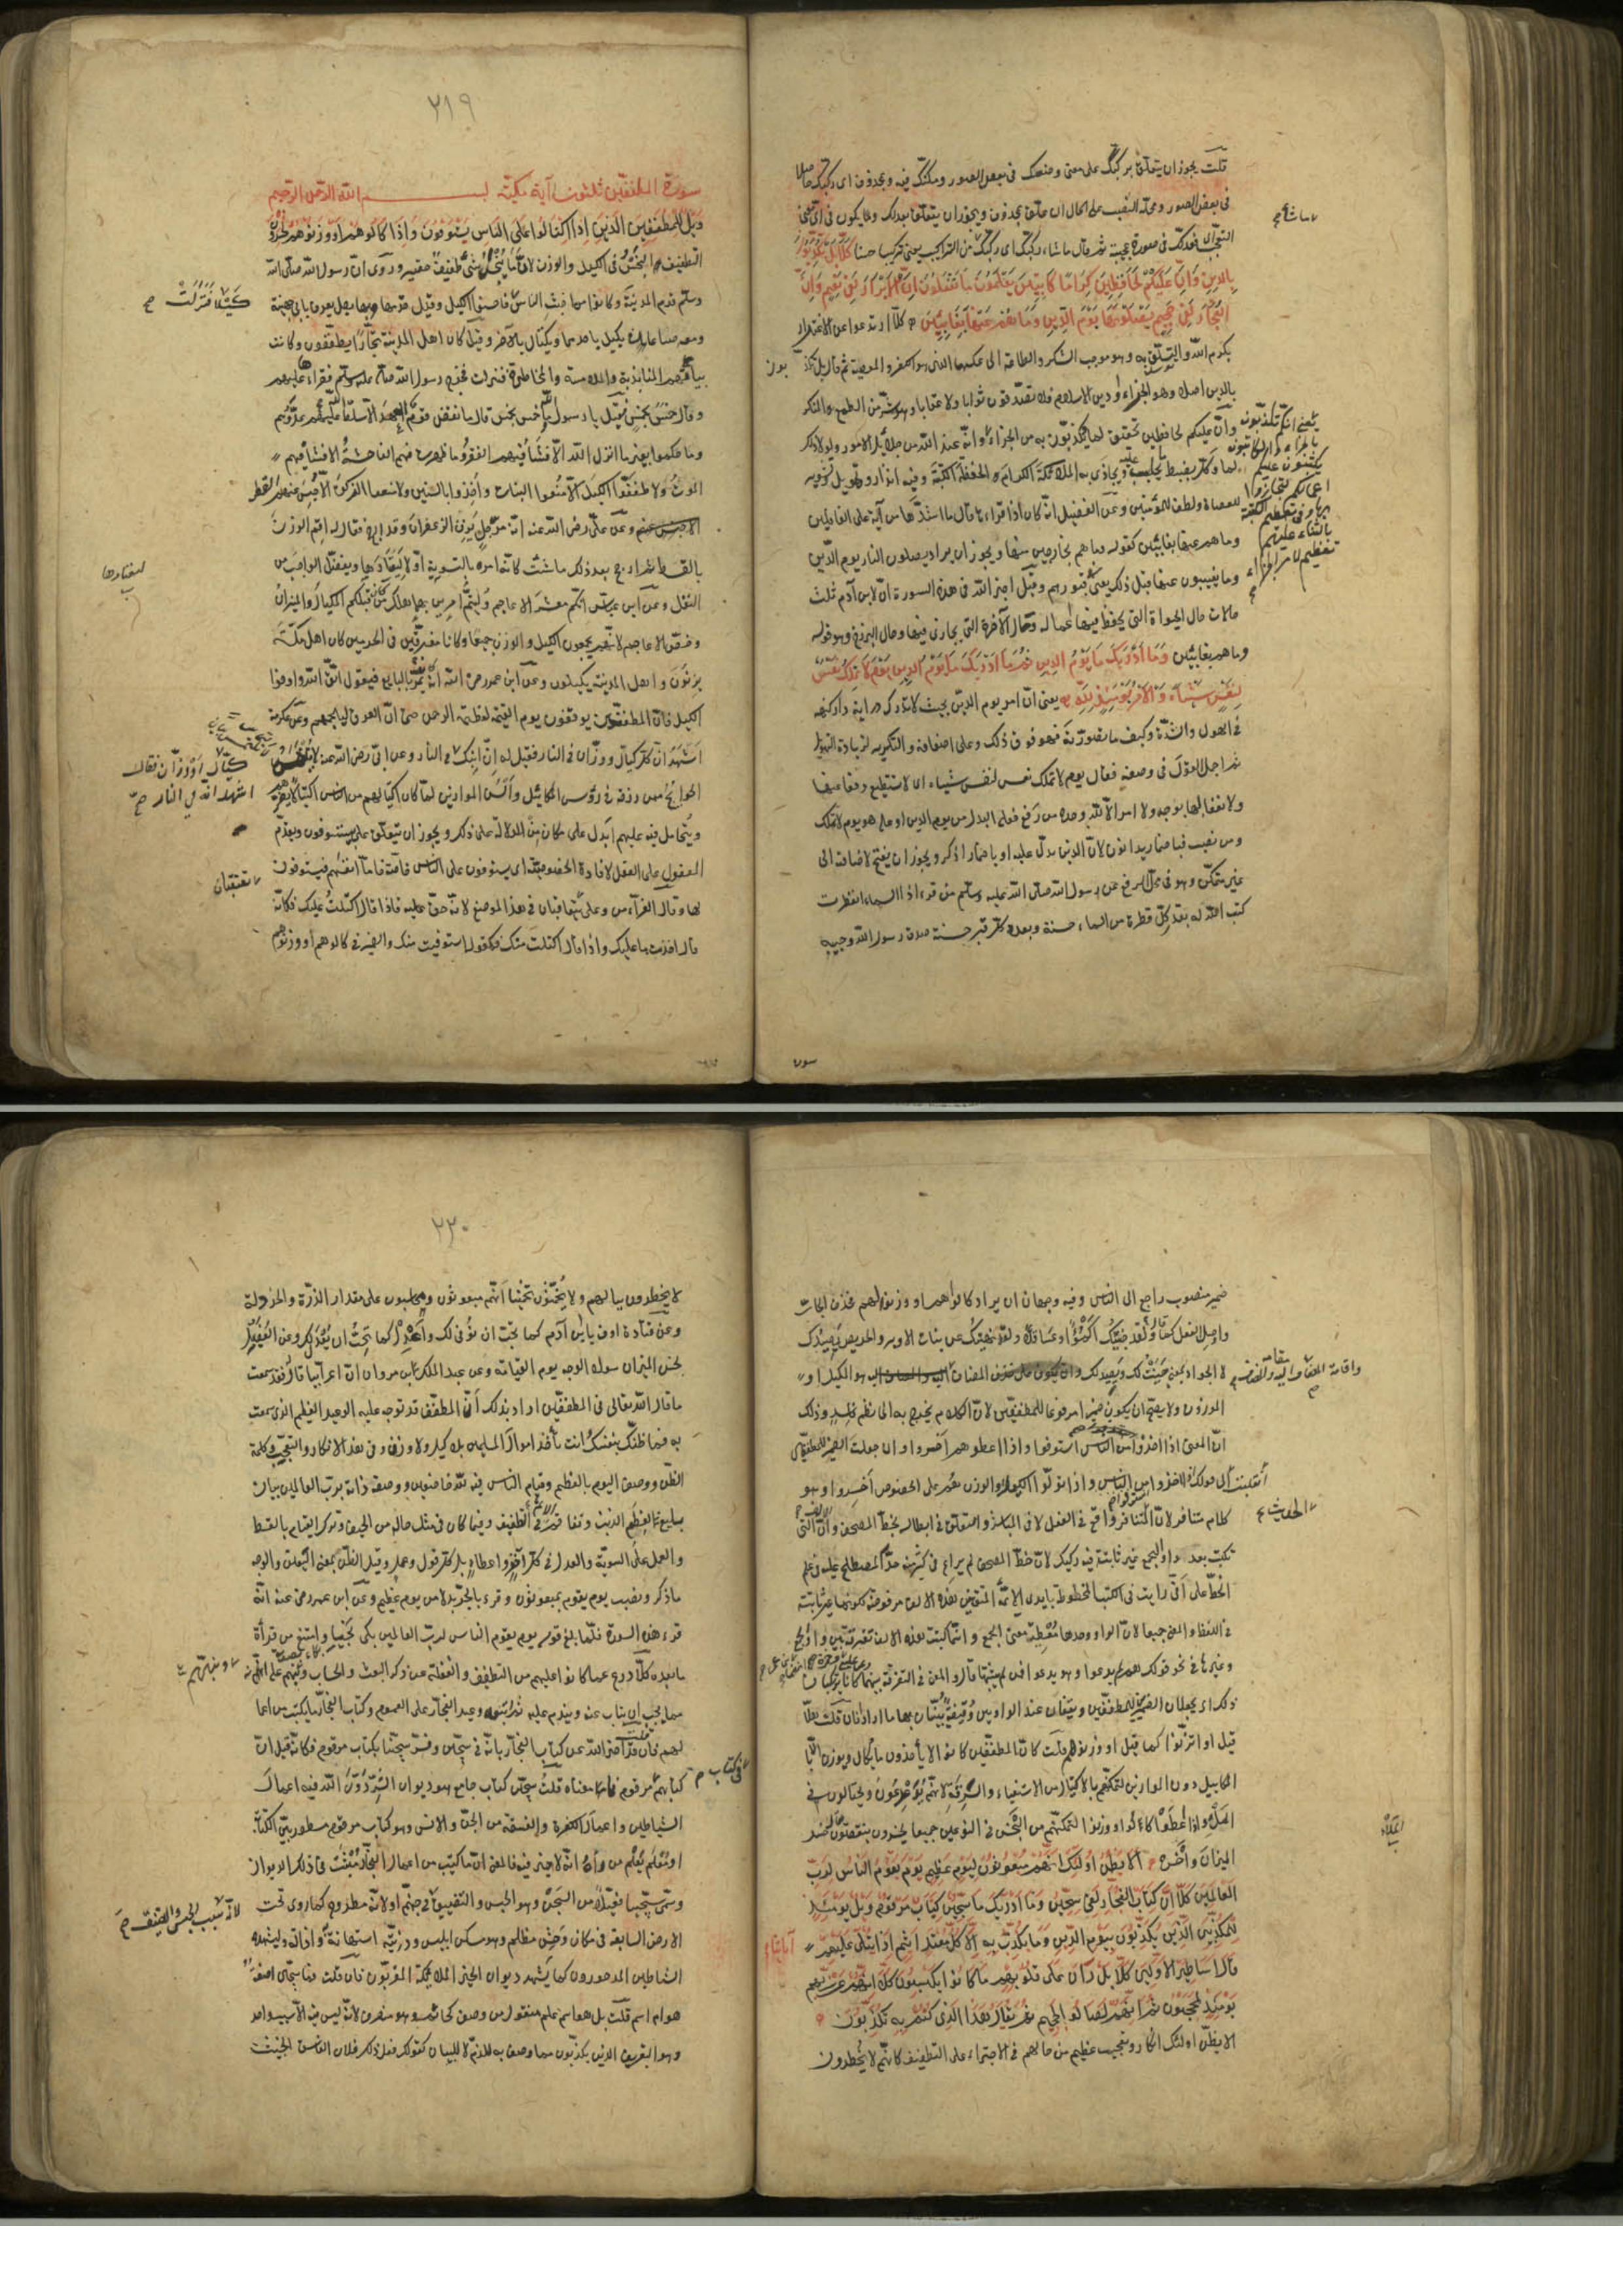 قلت يجوز ان يتعلق بركبك على معنى وضعك في بعض الصور ومكنك فيه وبمحذوف اى ركبك حاصلا
في بعض الصور ومحله النصب على الحال ان علق بمحذوف ويجوز ان يتعلق بعدلك ويكون في اى معنى
التعجب اى فعدلك في صورة عجيبة ثم قال ما شاء ركبك اى ركبك من التراكيب يعنى تركيبا حسنا كلا بل تكذبون
بالدين وان عليكم لحافظين كراما كاتبين يعلمون ما تفعلون ان الابرار لفي نعيم وان
الفجار لفي جحيم يصلونها يوم الدين وما هم عنها بغائبين كلا ارتدعوا عن الاغترار
بكرم الله والتسلق به وهو موجب الشكر والطاعة الى عكسهما الذى هو الكفر والمعصية ثم قال بل تكذبون
بالدين اصلا وهو الجزاء او دين الاسلام فلا تصدقون ثوابا ولا عقابا وهو شر من الطمع المنكر
وان عليكم لحافظين تحقيق لما يكذبون به من الجزاء
وفيه انذار وتهويل وتشوير
للعصاة ولطف للمؤمنين وعن الفضيل انه كان اذا قراها قال ما اشدها من آية على الغافلين
وما هم عنها بغائبين كقوله وما هم بخارجين منها ويجوز ان يراد يصلون النار يوم الدين
وما يغيبون عنها قبل ذلك يعنى في قبورهم وقيل اخبر الله في هذه السورة ان لابن آدم ثلث
حالات حال الحيوة التى يحفظ فيها عمله وحال الآخرة التى يجازى فيها وحال البرزخ وهو قوله
وما هم عنها بغائبين وما ادريك ما يوم الدين ثم ما ادريك ما يوم الدين يوم لا تملك نفس
لنفس شيئا والامر يومئذ لله يعنى ان امر يوم الدين بحيث لا تدرك دراية دار كنهه
في الهول والشدة وكيف ما تصورته فهو فوق ذلك وعلى اضعافه والتكرير لزيادة التهويل
ثم اجمل القول في وصفه فقال يوم لا تملك نفس لنفس شيئا اى لا تستطيع دفعا عنها
ولا نفعا لها بوجه ولا امر الا لله وحده من رفع فعلى البدل من يوم الدين او على هو يوم لا تملك
ومن نصب فباضمار يدانون لان الدين يدل عليه او باضمار اذكر ويجوز ان يفتح لاضافته الى
غير متمكن وهو في محل الرفع عن رسول الله صلى الله عليه وسلم من قرء اذا السماء انفطرت
كتب الله له بعدد كل قطرة من السماء حسنة وبعدد كل قبر حسنة صدق رسول الله وحبيبه
٢١٩
سورة المطففين ثلثون آية مكية بسم الله الرحمن الرحيم
ويل للمطففين الذين اذا اكتالوا على الناس يستوفون واذا كالوهم او وزنوهم يخسرون
التطفيف البخس في الكيل والوزن لان ما يبخس شئ طفيف حقير وروى ان رسول الله صلى الله
وسلم قدم المدينة وكانوا من اخبث الناس
ومعه صاعان يكيل باحدهما ويكتال بالآخر وقيل كان اهل المدينة تجارا يطففون وكانت
بياعاتهم المنابذة والملامسة والمخاطرة فنزلت فخرج رسول الله صلى عليه وسلم فقراها عليهم
وقال خمس بخمس قيل يا رسول الله ما خمس بخمس قال ما نقض قوم العهد الا سلط الله عليهم عدوهم
وما حكموا بغير ما انزل الله الا فشا فيهم الفقر وما ظهرت فيهم الفاحشة الا فشا فيهم
الموت ولا طففوا الكيل الا منعوا النبات واخذوا بالسنين ولا منعوا الزكوة الا حبس عنهم القطر
وعن على رضى الله عنه انه مر برجل يزن الزعفران وقد ارجح فقال له اقم الوزن
بالقسط ثم ارجح بعد ذلك ما شئت كانه امره بالتسوية اولا ليعتادها ويفضل الواجب من
النفل وعن ابن عباس انكم معشر الاعاجم وليتم امرين بهما هلك من كان قبلكم المكيال والميزان
وخص الاعاجم لانهم يجمعون الكيل والوزن جميعا وكانا مفرقين في الحرمين كان اهل مكة
يزنون واهل المدينة يكيلون وعن ابن عمر رضى الله انه كان يمر بالبايع فيقول اتق الله واوف
الكيل فان المطففين يوقفون يوم القيمة لعظمة الرحمن حتى ان العرق ليلجمهم وعن عكرمة
اشهد ان كل كيال ووزان في النار فقيل له ان ابنك
الحوائج ممن رزقه في رؤس المكاييل والسن الموازين لما كان اكتيالهم من الناس اكتيالا يضرهم
ويتحامل فيه عليهم ابدل على مكان من للدلالة على ذلك ويجوز ان يتعلق على بيستوفون ويقدم
المفعول على الفعل لافادة الخصوصية اى يستوفون على الناس خاصة فاما انفسهم فيستوفون
لها وقال الفراء من وعلى يتعاقبان في هذا الموضع لانه حق عليه فاذا قال اكتلت عليك فكانه
قال اخذت ما عليك واذا قال اكتلت منك فكقوله استوفيت منك والضمير في كالوهم او وزنوهم
ضمير منصوب راجع الى الناس وفيه وجهان ان يراد كالوا لهم او وزنوا لهم فحذف الجار
واوصل الفعل كما قال ولقد جنيتك اكمؤا وعساقلا ولقد نهيتك عن بنات الاوبر والحريص يصيدك
لا الجواد بمعنى جنيت لك ويصيد لك
الموزون ولا يصح ان يكون ضميرا مرفوعا للمطففين لان الكلام يخرج به الى نظم فاسد وذلك
ان المعنى اذا اخذوا من الناس استوفوا واذا اعطوهم اخسروا وان جعلت الضمير للمطففين
انقلبت الى قولك اذا اخذوا من الناس استوفوا واذا تولوا الكيل او الوزن هم على الخصوص اخسروا وهو
كلام متنافر لان الحديث واقع في الفعل لا في المباشر والتعلق في ابطاله بخط المصحف وان الالف التى
تكتب بعد واو الجمع غير ثابتة فيه ركيك لان خط المصحف لم يراع في كثير منه حد المصطلح عليه في علم
الخط على انى رايت في الكتب المخطوطة بايدى الائمة المتقنين هذه الالف مرفوضة لكونها غير ثابتة
في اللفظ والمعنى جميعا لان الواو وحدها معطية معنى الجمع وانما كتبت هذه الالف تفرقة بين واو الجمع
وغيرها في نحو قولك هم لم يدعوا وهو يدعو فمن لم يثبتها قال المعنى في التفرقة بينهما
ذلك اى يجعلان الضميرين للمطففين ويقفان عند الواوين وقيفة يبينان بها ما ارادا فان قلت هلا
قيل او اتزنوا كما قيل او وزنوهم قلت كان المطففين كانوا لا يأخذون ما يكال ويوزن الا
المكاييل دون الموازين لتمكنهم بالاكتيال من الاستيفاء والسرقة لانهم يدعدعون ويحتالون في
الملء واذا اعطوا كالوا او وزنوا لتمكنهم من البخس في النوعين جميعا يخسرون ينقصون يقال خسر
الميزان واخسره الا يظن اولئك انهم مبعوثون ليوم عظيم يوم يقوم الناس لرب
العالمين كلا ان كتاب الفجار لفي سجين وما ادريك ما سجين كتاب مرقوم ويل يومئذ
للمكذبين الذين يكذبون بيوم الدين وما يكذب به الا كل معتد اثيم اذا يتلى عليه آياتنا
قال اساطير الاولين كلا بل ران على قلوبهم ما كانوا يكسبون كلا انهم عن ربهم
يومئذ لمحجوبون ثم انهم لصالوا الجحيم ثم يقال هذا الذي كنتم به تكذبون
الا يظن اولئك انكار وتعجيب عظيم من حالهم في الاجتراء على التطفيف كانهم لا يخطرون
٢٢٠
لا يخطرون ببالهم ولا يخمنون تخمينا انهم مبعوثون ومحاسبون على مقدار الذرة والخردلة
وعن قتادة اوف يا ابن آدم كما تحب ان يوفى لك واعدل كما تحب ان يعدل لك وعن الفضيل
بخس الميزان سواد الوجه يوم القيامة وعن عبد الملك بن مروان ان اعرابيا قال له قد سمعت
ما قال الله تعالى في المطففين اراد بذلك ان المطفف قد توجه عليه الوعيد العظيم الذى سمعت
به فما ظنك بنفسك انت تأخذ اموال المسلمين بلا كيل ولا وزن وفي هذا الانكار والتعجيب وكلمة
الظن ووصف اليوم بالعظيم وقيام الناس فيه لله خاضعين ووصفه ذاته برب العالمين بيان
بليغ لعظم الذنب وتفاقم الاثم في التطفيف وفيما كان في مثل حاله من الحيف وترك القيام بالقسط
والعمل على السوية والعدل في كل اخذ واعطاء بل كل قول وعمل وقيل الظن بمعنى اليقين والوجه
ما ذكر ونصب يوم يقوم بمبعوثون وقرء بالجر بدلا من يوم عظيم وعن ابن عمر رضى عنه انه
قرء هذه السورة فلما بلغ قوله يوم يقوم الناس لرب العالمين بكى نحيبا وامتنع من قرأة
ما بعده كلا ردع عما كانوا عليهم من التطفيف والغفلة عن ذكر البعث والحساب ونبههم على انه
مما يجب ان يتاب عنه ويندم عليه ثم اتبعه وعيد الفجار على العموم وكتاب الفجار ما يكتب من اعما
لهم فان قلت قد اخبر الله عن كتاب الفجار بانه في سجين وفسر سجينا بكتاب مرقوم فكانه قيل ان
كتابهم في كتاب مرقوم فما معناه قلت سجين كتاب جامع هو ديوان الشر دون الله فيه اعمال
الشياطين واعمال الكفرة والفسقة من الجن والانس وهو كتاب مرقوم مسطور بين الكتابة
او معلم يعلم من رآه انه لا خير فيه فالمعنى ان ما كتب من اعمال الفجار مثبت في ذلك الديوان
وسمى سجينا فعيلا من السجن وهو الحبس والتضييق في جهنم او لانه مطروح كما روى تحت
الارض السابعة في مكان وحش مظلم وهو مسكن ابليس وذريته استهانة واذالة وليشهده
الشياطين المدحورون كما يشهد ديوان الخير الملائكة المقربون فان قلت فما سجين اصفة
هو ام اسم قلت بل هو اسم علم منقول من وصف كحاتم وهو منصرف لانه ليس فيه الا سبب واحد
وهو التعريف الذين يكذبون مما وصف به للذم لا للبيان كقولك فعل ذلك فلان الفاسق الخبيث